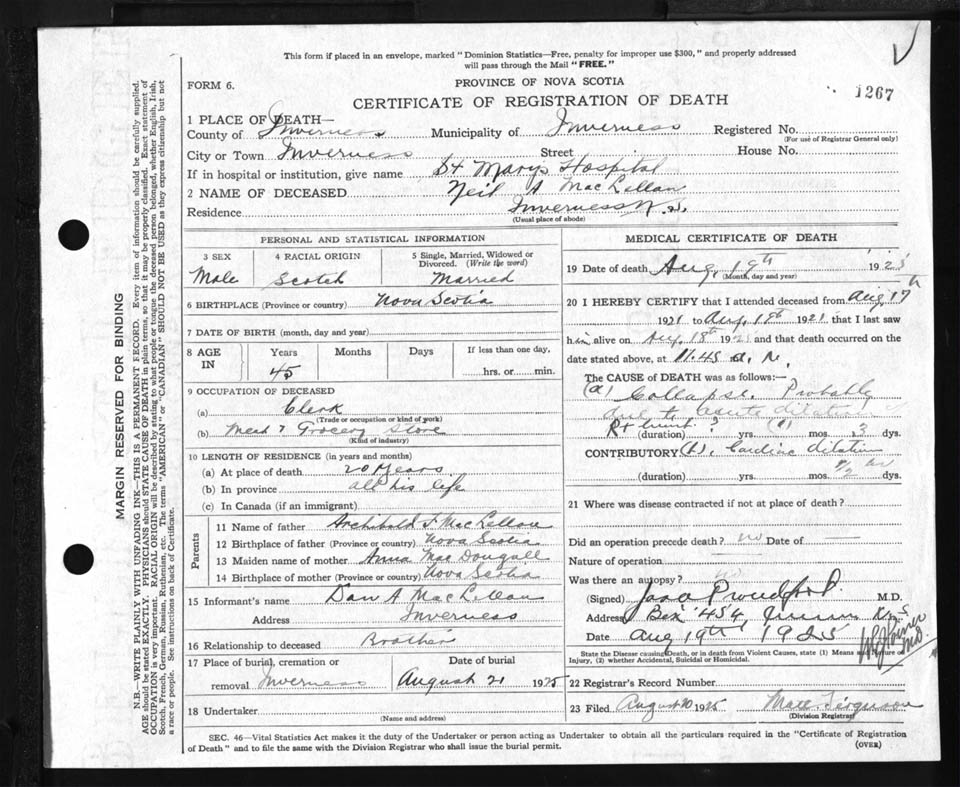 This form if placed in an envelope, marked "Dominion Statistics—Free, penalty for improper use $300," and properly addressed
will pass through the Mail "FREE."
FORM 6.
PROVINCE OF NOVA SCOTIA
1267
CERTIFICATE OF REGISTRATION OF DEATH
1 PLACE OF DEATH—
County of Inverness Municipality of Inverness Registered No.
(For use of Registrar General only)
City or Town Inverness Street House No.
If in hospital or institution, give name St Marys Hospital
2 NAME OF DECEASED Neil A MacLellan
Residence Inverness N.S.
(Usual place of abode)
MARGIN RESERVED FOR BINDING
N.B.—WRITE PLAINLY WITH UNFADING INK—THIS IS A PERMANENT RECORD. Every item of information should be carefully supplied.
AGE should be stated EXACTLY. PHYSICIANS should STATE CAUSE OF DEATH in plain terms, so that it may be properly classified. Exact statement of
OCCUPATION is very important. RACIAL ORIGIN will be described by stating to what people or tongue the deceased person belonged, whether English, Irish,
Scotch, French, German, Russian, Ruthenian, etc. The terms "AMERICAN" or "CANADIAN" SHOULD NOT BE USED as they express citizenship but not
a race or people. See instructions on back of Certificate.
PERSONAL AND STATISTICAL INFORMATION
3 SEX
Male
4 RACIAL ORIGIN
Scotch
5 Single, Married, Widowed or
Divorced. (Write the word)
Married
6 BIRTHPLACE (Province or country) Nova Scotia
7 DATE OF BIRTH (month, day and year)
8 AGE
IN
Years
45
Months
Days
If less than one day,
hrs. or min.
9 OCCUPATION OF DECEASED
(a) Clerk
(Trade or occupation or kind of work)
(b) Meat & Grocery Store
(Kind of industry)
10 LENGTH OF RESIDENCE (in years and months)
(a) At place of death 20 Years
(b) In province all his life
(c) In Canada (if an immigrant)
Parents
11 Name of father Archibald F. MacLellan
12 Birthplace of father (Province or country) Nova Scotia
13 Maiden name of mother Anna MacDougall
14 Birthplace of mother (Province or country) Nova Scotia
15 Informant's name Dan A MacLellan
Address Inverness
16 Relationship to deceased Brother
17 Place of burial, cremation or
removal Inverness
Date of burial
August 21 1925
18 Undertaker
(Name and address)
MEDICAL CERTIFICATE OF DEATH
19 Date of death Aug, 19th 1925
(Month, day and year)
20 I HEREBY CERTIFY that I attended deceased from Aug 17th
1921 to Aug, 18th 1921 that I last saw
him alive on Aug. 18th 1921 and that death occurred on
date stated above, at 11.45 a. m.
The CAUSE OF DEATH was as follows:—
(a) Collapse. Probably
due to acute dilatation
(duration) yrs. mos. 3 dys.
CONTRIBUTORY (b). Cardiac dilatation
(duration) yrs. mos. dys.
21 Where was disease contracted if not at place of death?
Did an operation precede death? no Date of
Nature of operation
Was there an autopsy? no
(Signed) Proudfoot M.D.
Address Box 454,
Date Aug 19th, 1925
State the Disease causing Death, or in death from Violent Causes, state (1) Means and Nature of
Injury, (2) whether Accidental, Suicidal or Homicidal.
22 Registrar's Record Number
23 Filed August 20 1925 Ferguson
(Division Registrar)
SEC. 46—Vital Statistics Act makes it the duty of the Undertaker or person acting as Undertaker to obtain all the particulars required in the "Certificate of Registration
of Death" and to file the same with the Division Registrar who shall issue the burial permit.
(OVER)